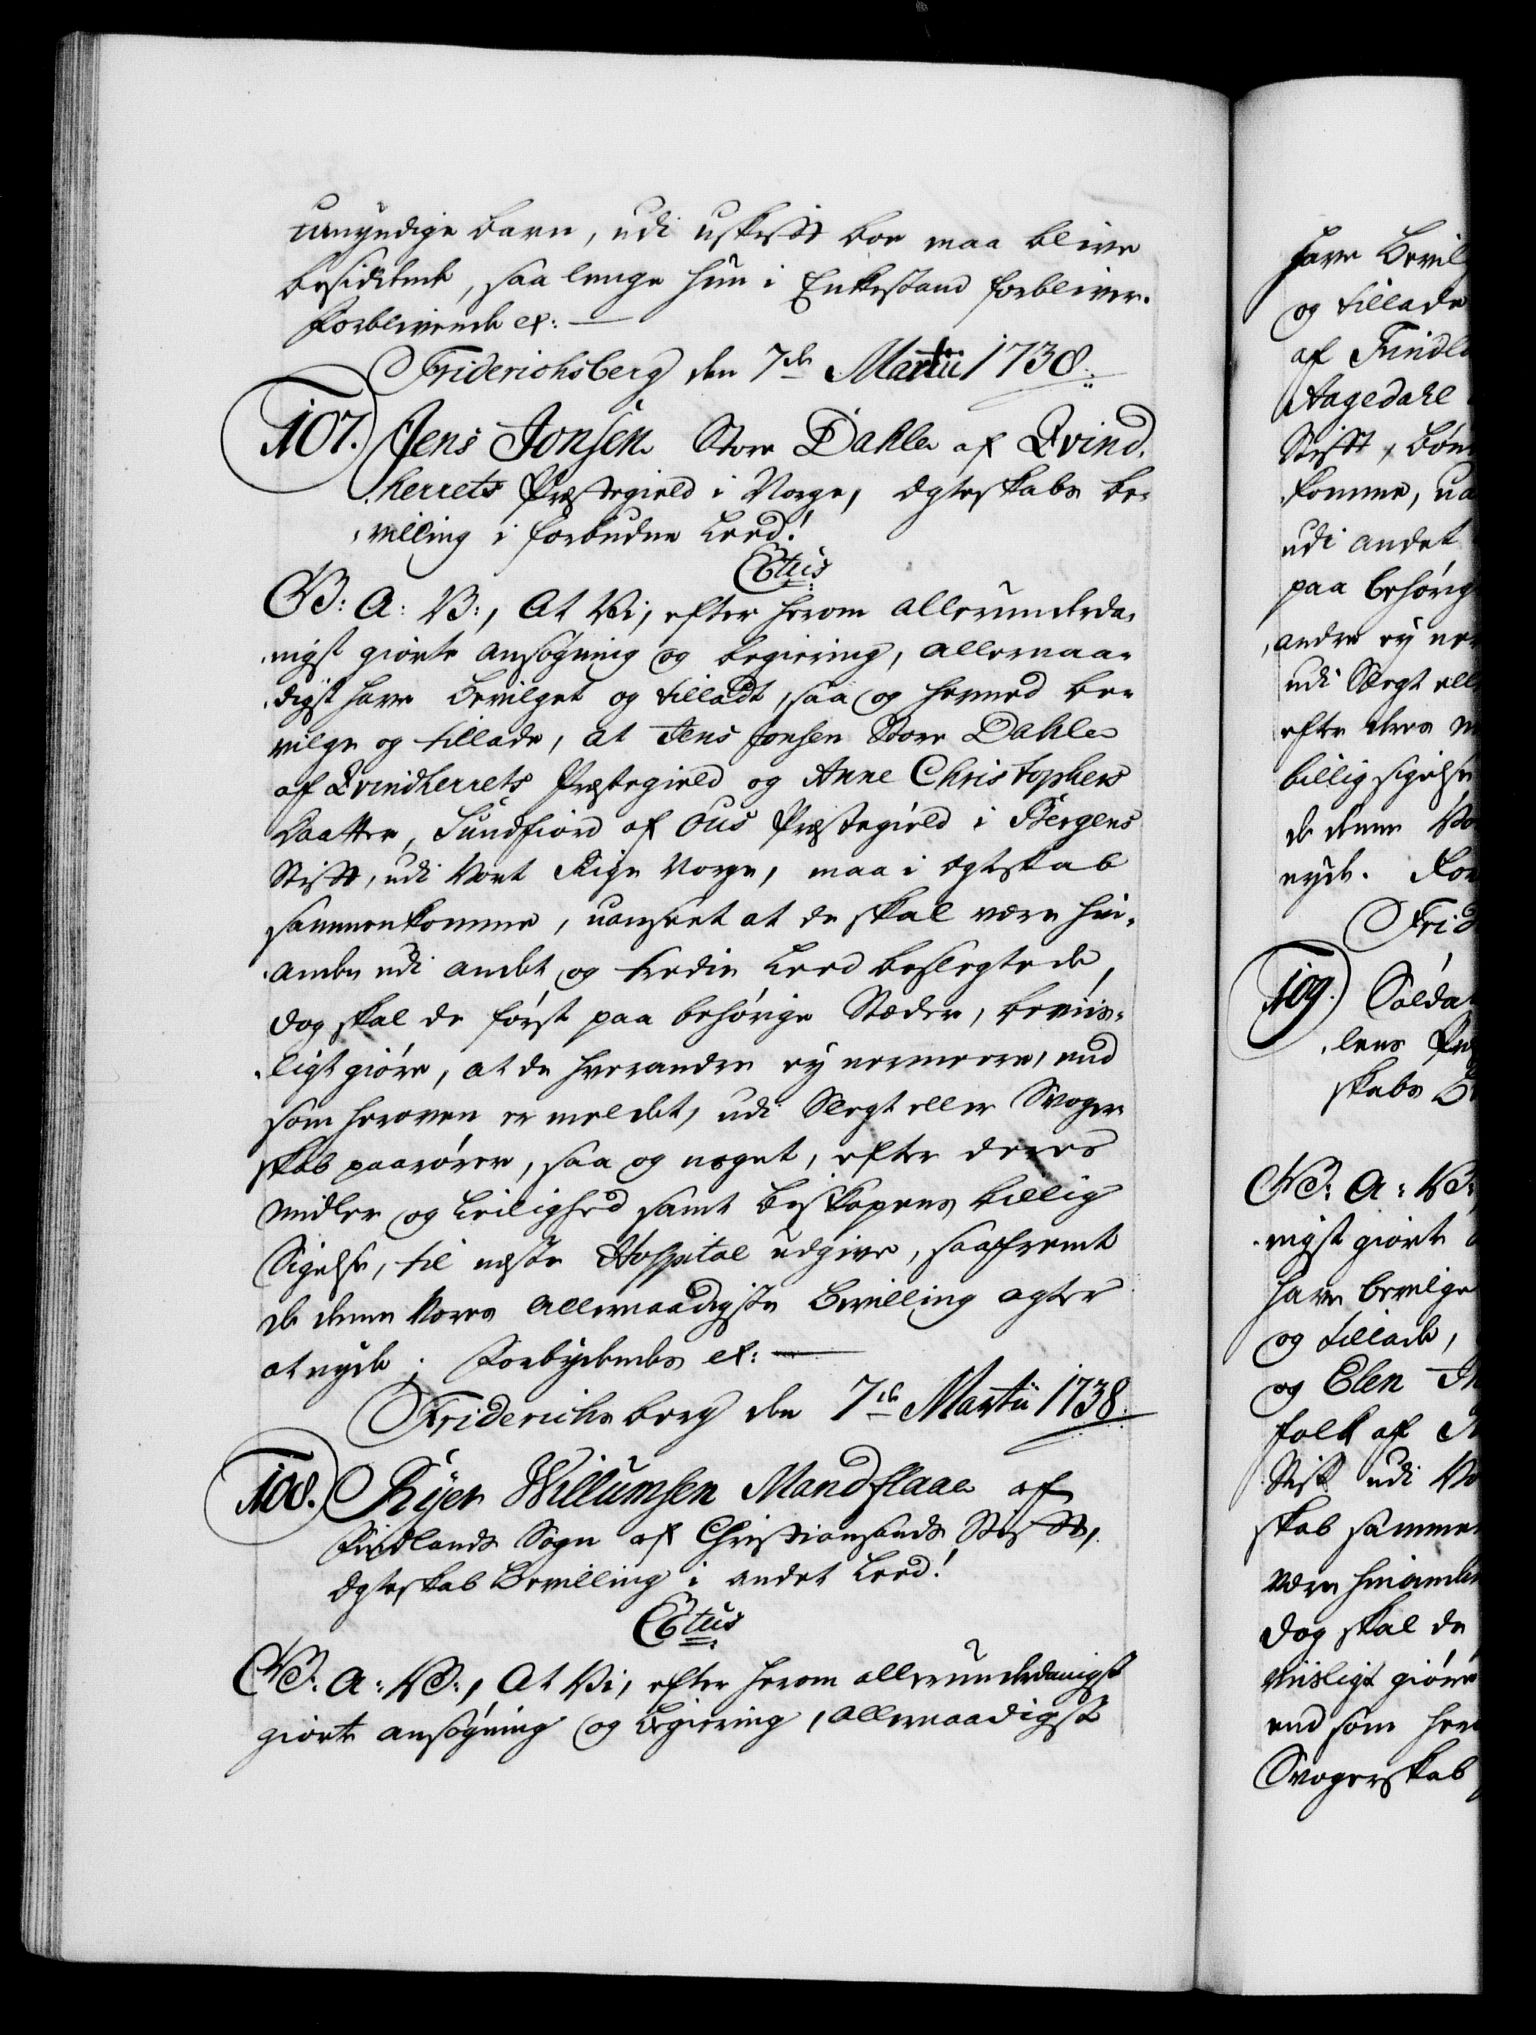 umyndige barn, udi uskift boe maa blive
besiddende, saa lenge hun i Enkestand forbliver.
Forblivende etc:
Friderichsberg den 7de Martii 1738.
107. Jens Jonsen Store Dahle af Qvind-
herrets Præstegield i Norge, Egteskabs Be-
villing i forbudne Leed!
C6tus
C5: A: V3:, At Vi, efter herom allerunderda-
nigst giorte ansøgning og begiering, allernaa-
digst have bevilget og tilladt, saa og hermed be-
vilge og tillade, at Jens Jonsen Store Dahle
af Qvindherrets Præstegield og Anne Christophers
Daatter, Sundfiord af Ous Præstegield i Bergens
Stift, udi Vort Rige Norge, maa i Egteskab
sammenkomme, uanseet at de skal være hin-
anden udi andet og tredie Leed beslegtede,
dog skal de først paa behørige Stæder, beviis-
ligt giøre, at de hverandre ey nermere, end
som heroven er meldet, udi Slegt eller Svoger-
skab paarører, saa og noget, efter deres
midler og Leilighed samt Biskopens billig
Sigelse, til næste Hospital udgive, saafremt
de denne Vores allernaadigste Bevilling agter
at nyde; Forbydendes etc:
Friderichsberg den 7de Martii 1738.
108. Ryer Willumsen Mandflaae af
Findlands Sogn af Christiansands Stift,
Egteskab Bevilling i andet Leed!
C6tus
C5: A: V3:, At Vi, efter herom allerunderdanigst
giorte ansøgning og begiering, allernaadigst
have Bevilg
og tillade
af Findl
Aagedahl
Stift, bøn
komme, ua
udi andet
paa behørig
andre ey ner
udi Slegt elle
efter deres m
billig sigelse
de denne Vo
nyde. For
Frid
109. Soldat
lens Præ
skabs B
C5: A: V3:
nigst giorte
have bevilge
og tillade,
og Elen
folk af
Stift udi Vo
skab sammen
være hinanden
dog skal de
viisligt giøre
end som her
Svogerskab